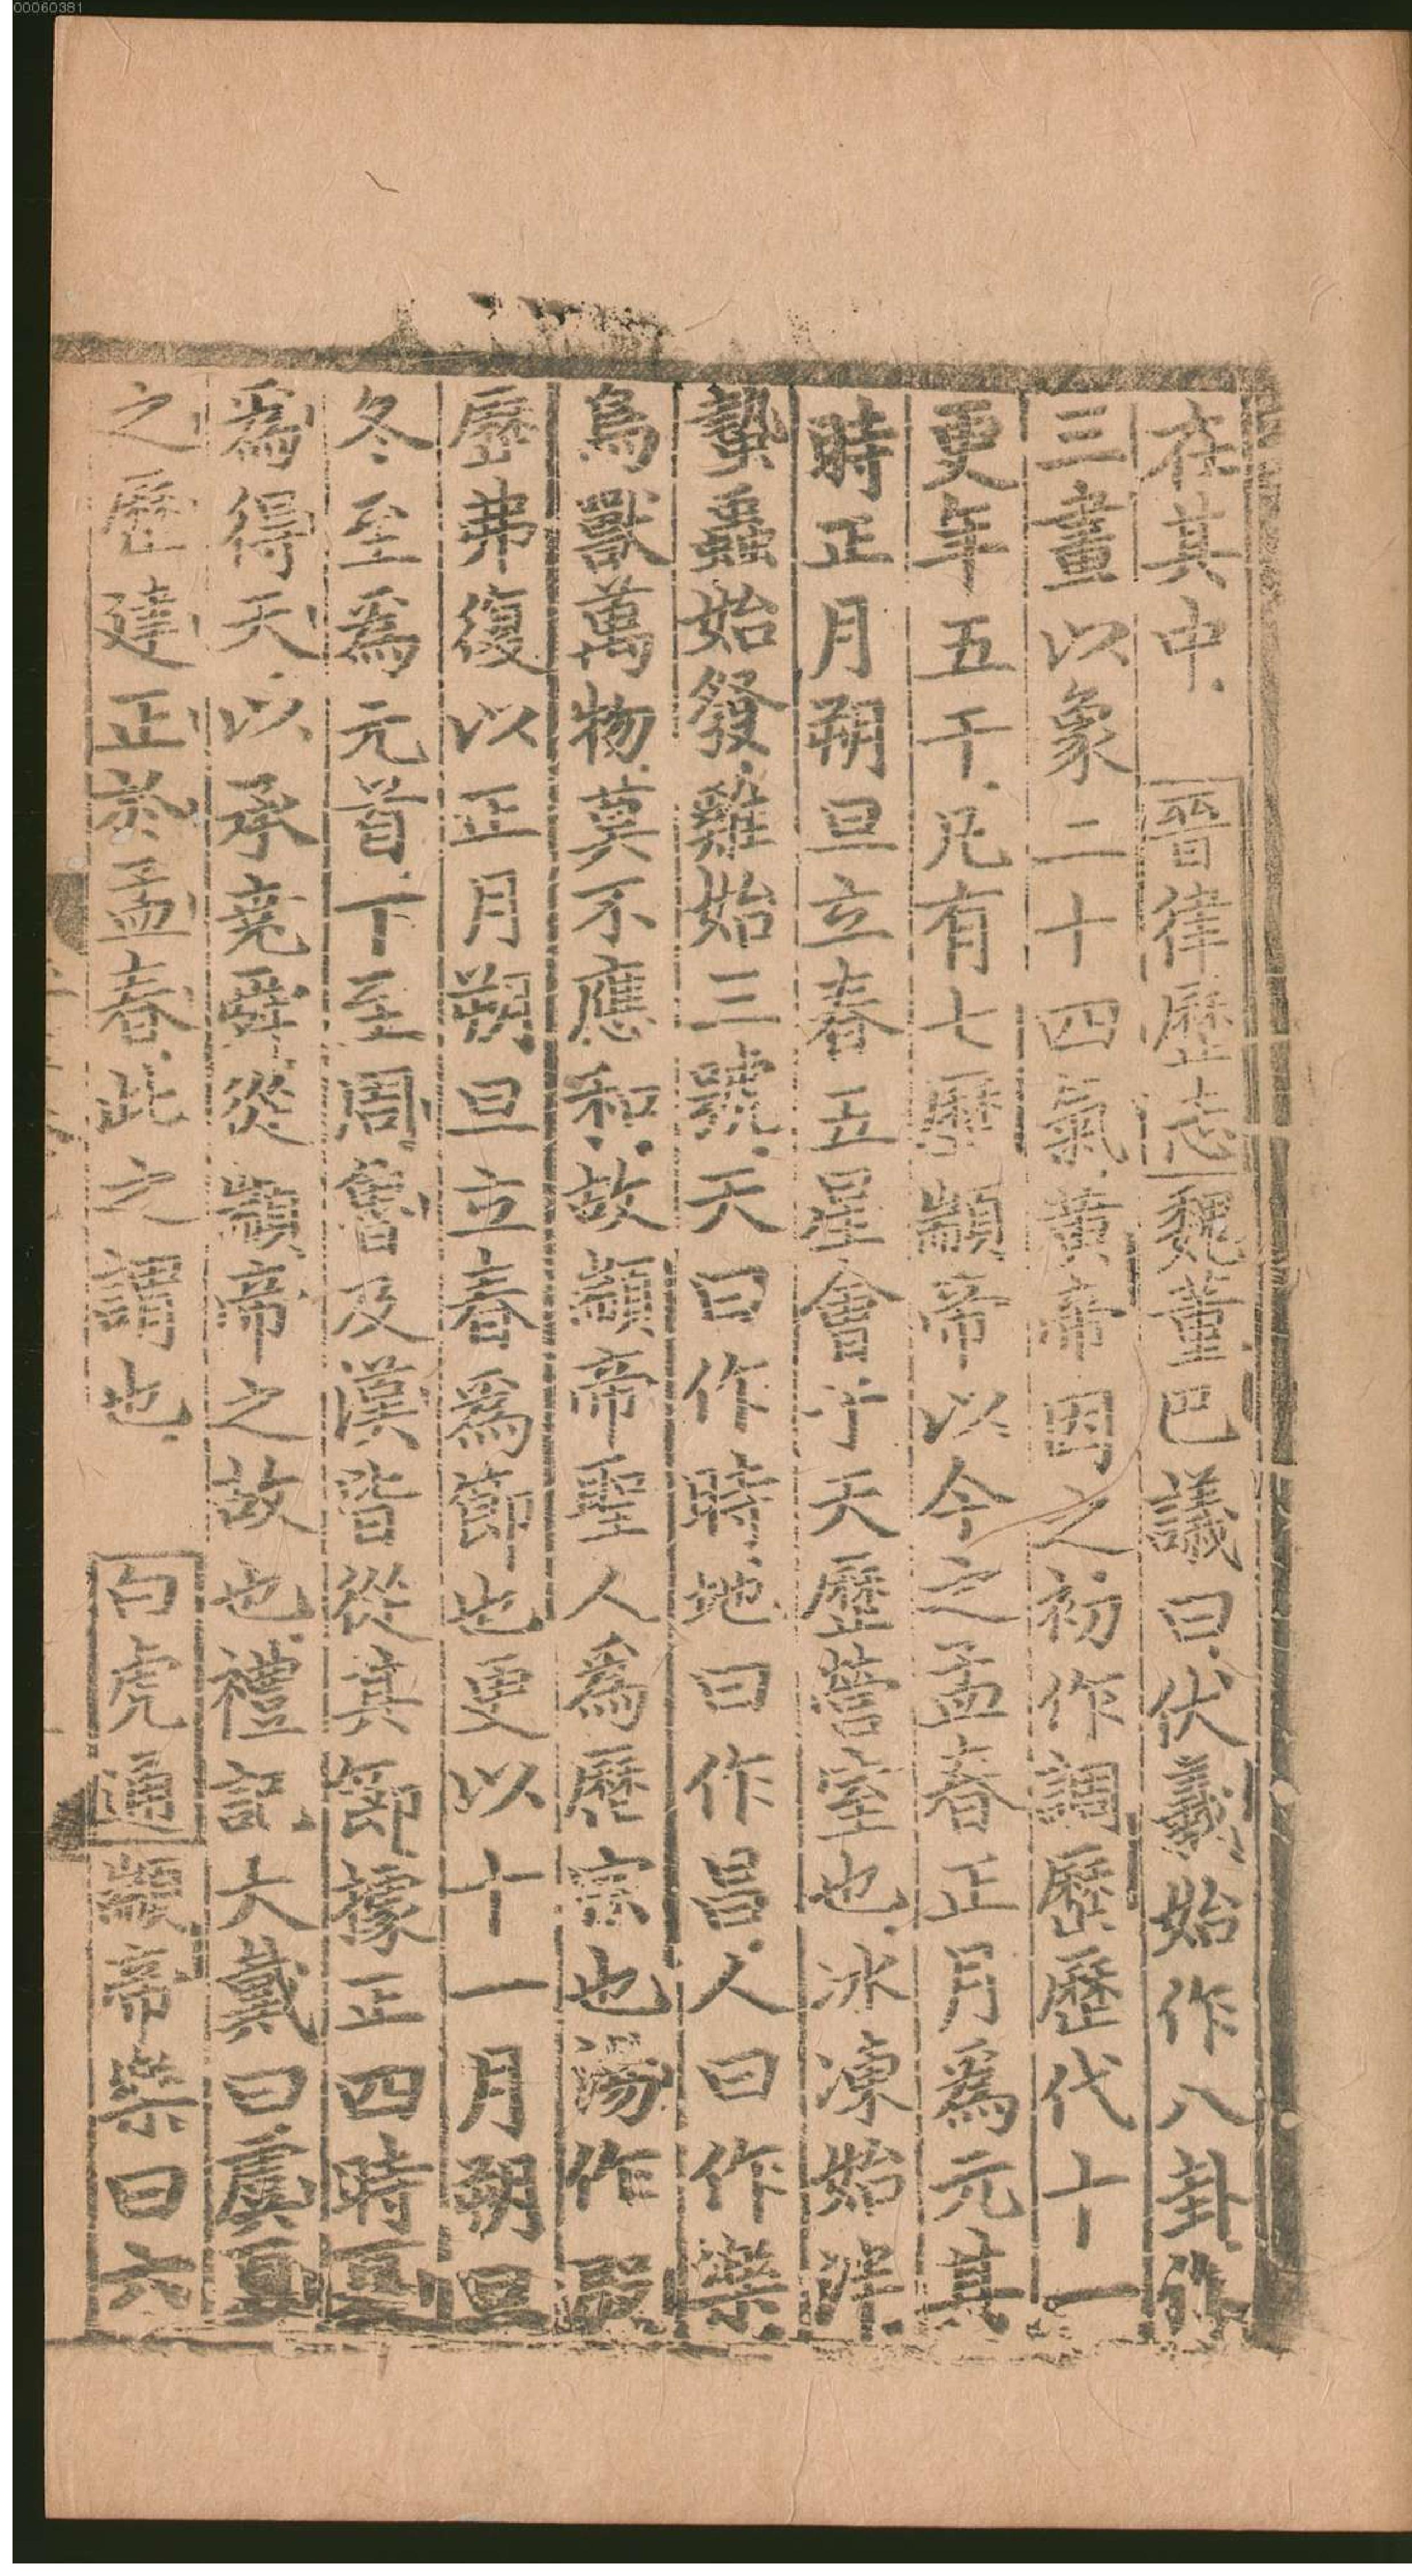 00060381
在其中晉律歷志魏董巴議曰伏羲始作八卦作
三畫以象二十四氣黃帝因之初作調歷歷代十一
更年五千凡有七歷顓帝以今之孟春正月爲元其
時正月朔旦立春五星會于天歷營室也冰凍始泮
蟄蟲始發雞始三號天曰作時地曰作昌人曰作樂
鳥獸萬物莫不應和故顓帝聖人爲歷宗也湯作殷
歷弗復以正月朔旦立春爲節也更以十一月朔旦
冬至爲元首下至周魯及漢皆從其節據正四時夏
爲得天以承堯舜從顓帝之故也禮記大戴曰虞夏
之歷建正於孟春此之謂也白虎通顓帝樂曰六